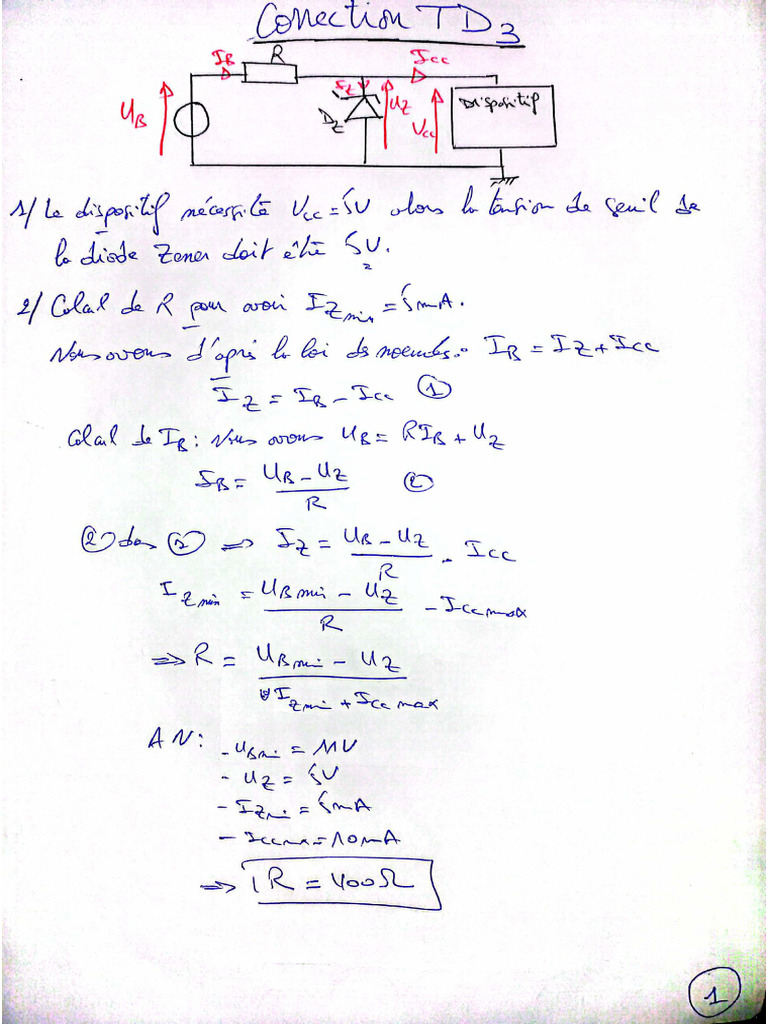 Correction TD3
IB R Icc
UB IZ DZ UZ Vcc Dispositif
1/ Le dispositif nécessite Vcc = 5V alors la tension de seuil de
la diode Zener doit être 5V.
2/ Calcul de R pour avoir IZmin = 5mA.
Nous avons d'après la loi des noeuds: IB = IZ + Icc
IZ = IB - Icc ①
Calcul de IB: Nous avons UB = RIB + UZ
IB = (UB - UZ)/R ②
② dans ① ⇒ IZ = (UB - UZ)/R - Icc
IZmin = (UBmin - UZ)/R - Iccmax
⇒ R = (UBmin - UZ)/(IZmin + Iccmax)
AN: - UBmin = 11V
- UZ = 5V
- IZmin = 5mA
- Iccmax = 10mA
⇒ R = 400Ω
1